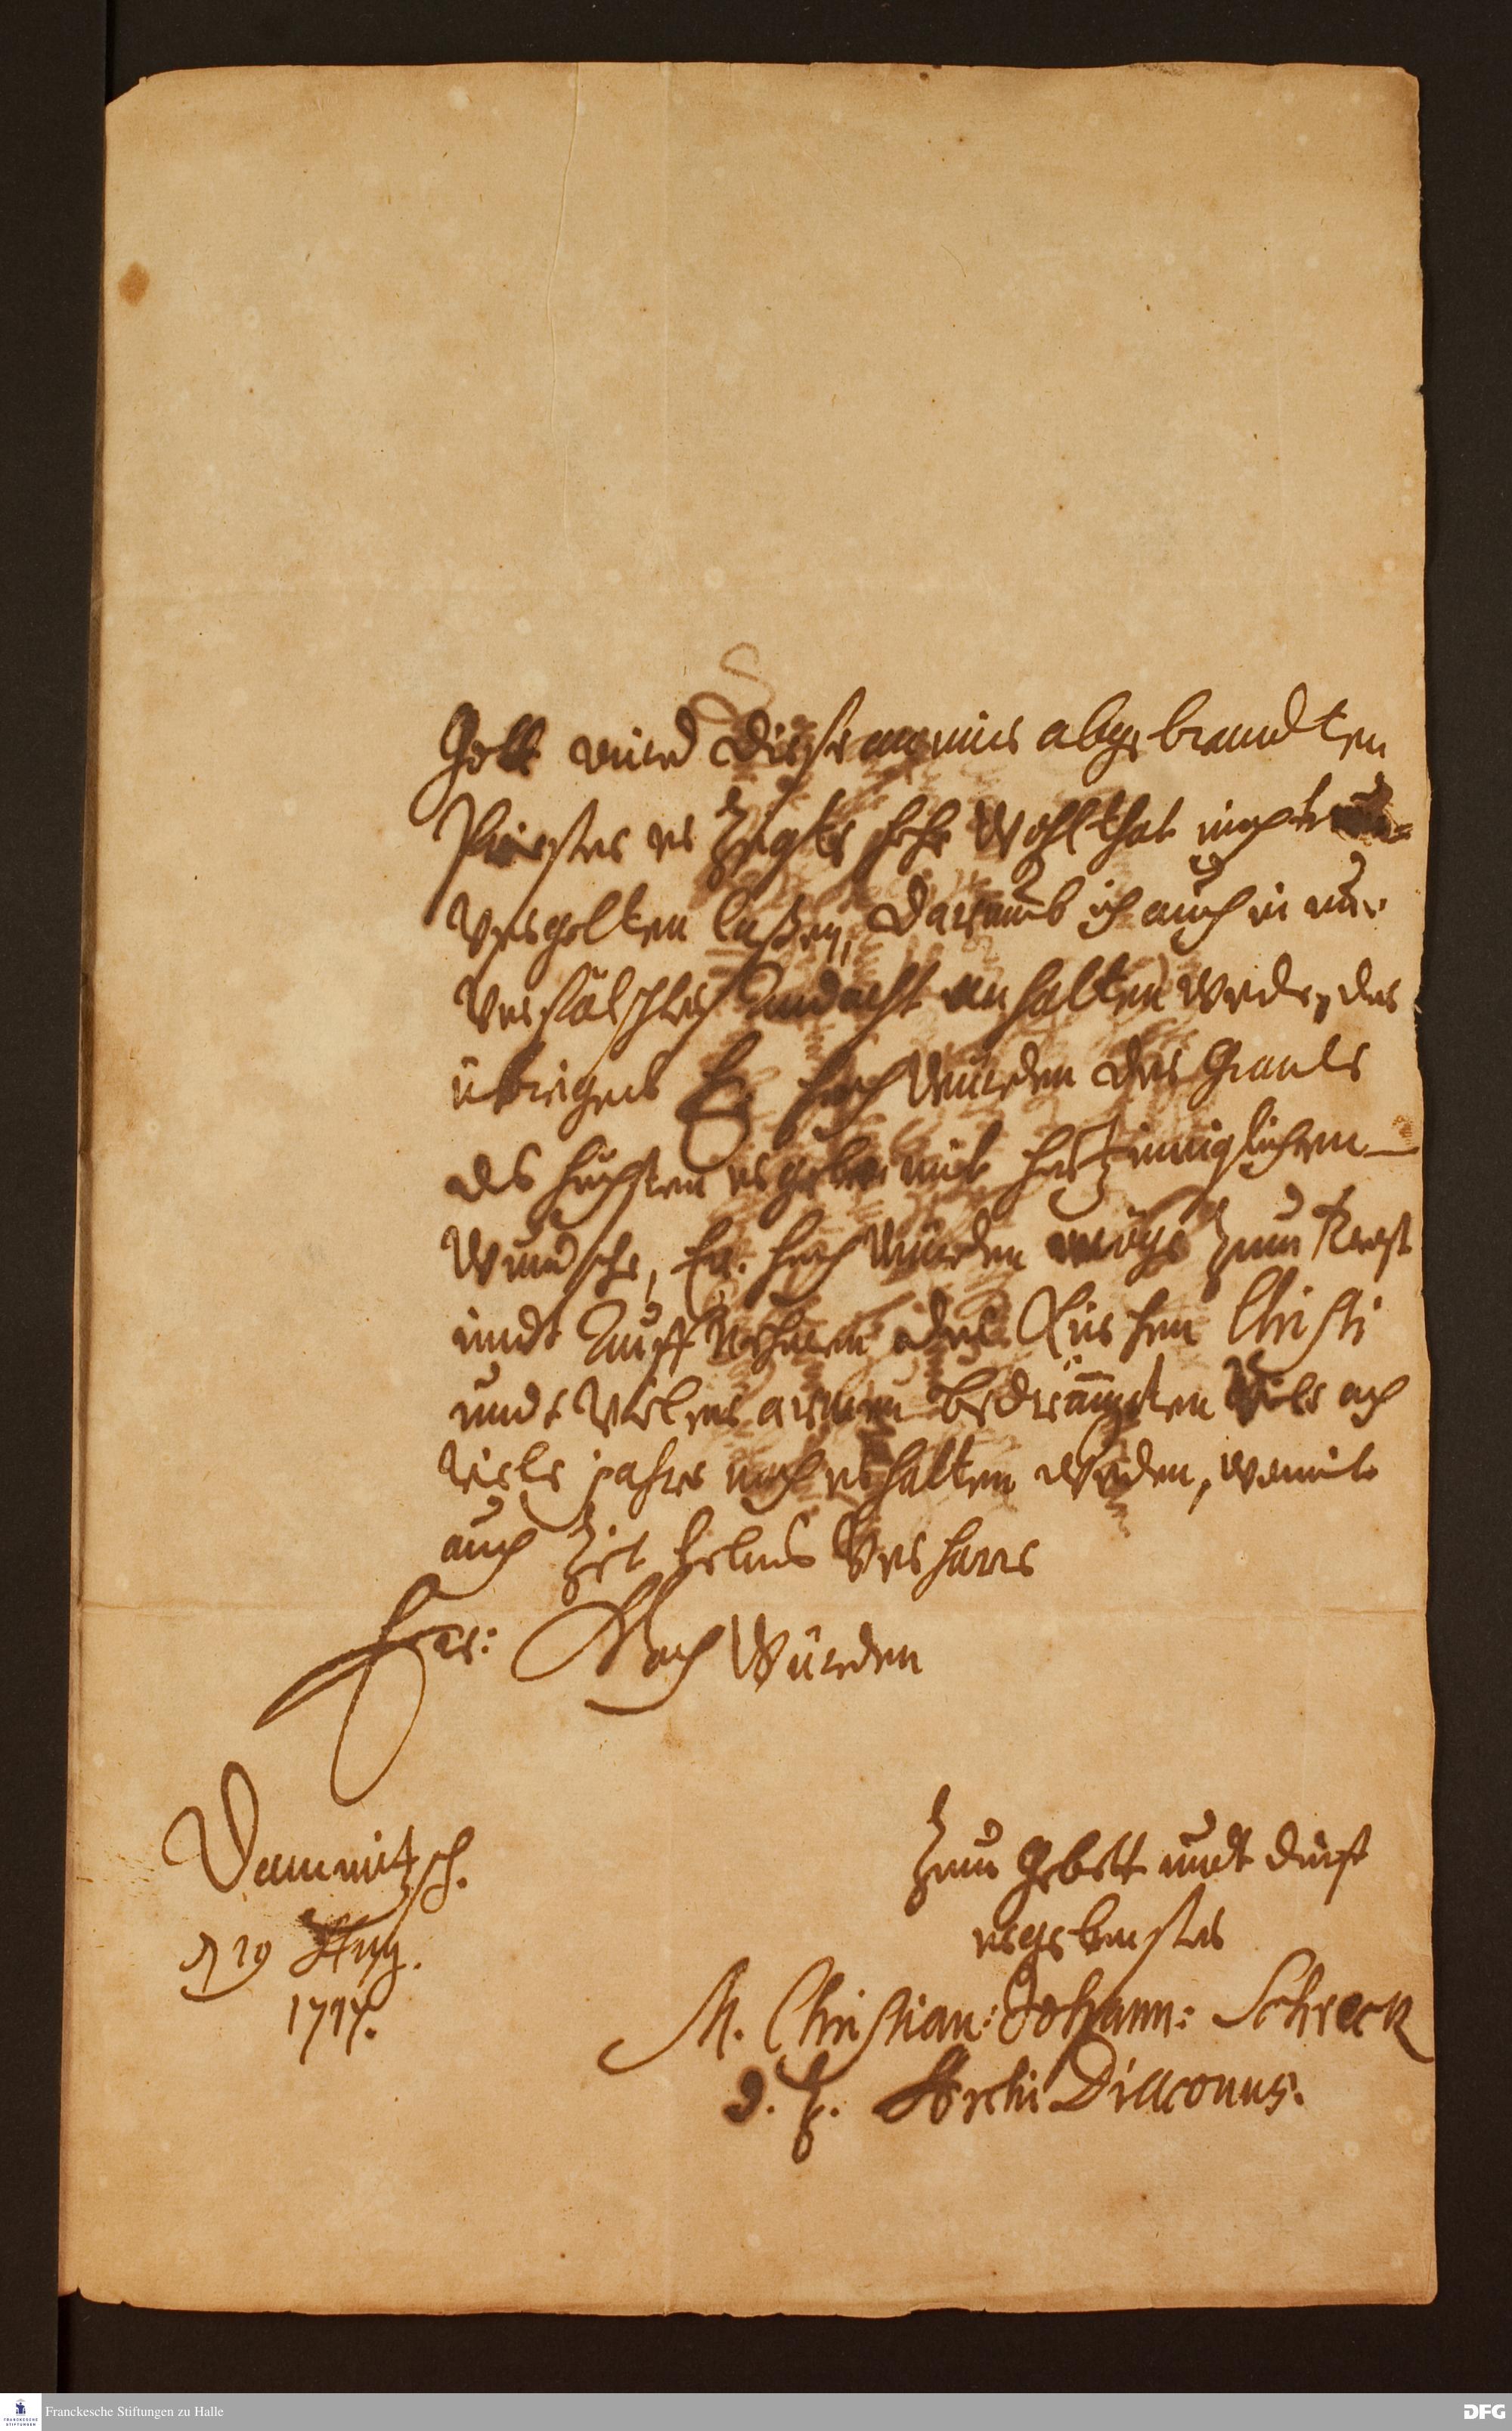 Gott wird diese an mir abgebrandten
Priester erzeigte hohe Wohlthat nicht un-
vergolten laßen, darumb ich auch in un-
verfälschter Andacht anhalten werde, der
übrigens Ew. HochWürden der Gnade
des höchsten ergebe mit hertzinniglichem
Wundsche, Ew. HochWürden möge zum Trost
undt Auffnehmen der Kirchen Christi
undt vieler armen bedrängten viele ach
viele jahre noch erhalten werden, womit
auch Zeit Lebens verharre
Ew: HochWürden
Dommitzsch.
d 19 Aug.
1717.
Zum Gebett undt dienst
ergebenster
M. Christian: Johann: Schreck
d. Z. ArchiDiaconus.
Franckesche Stiftungen zu Halle
DFG